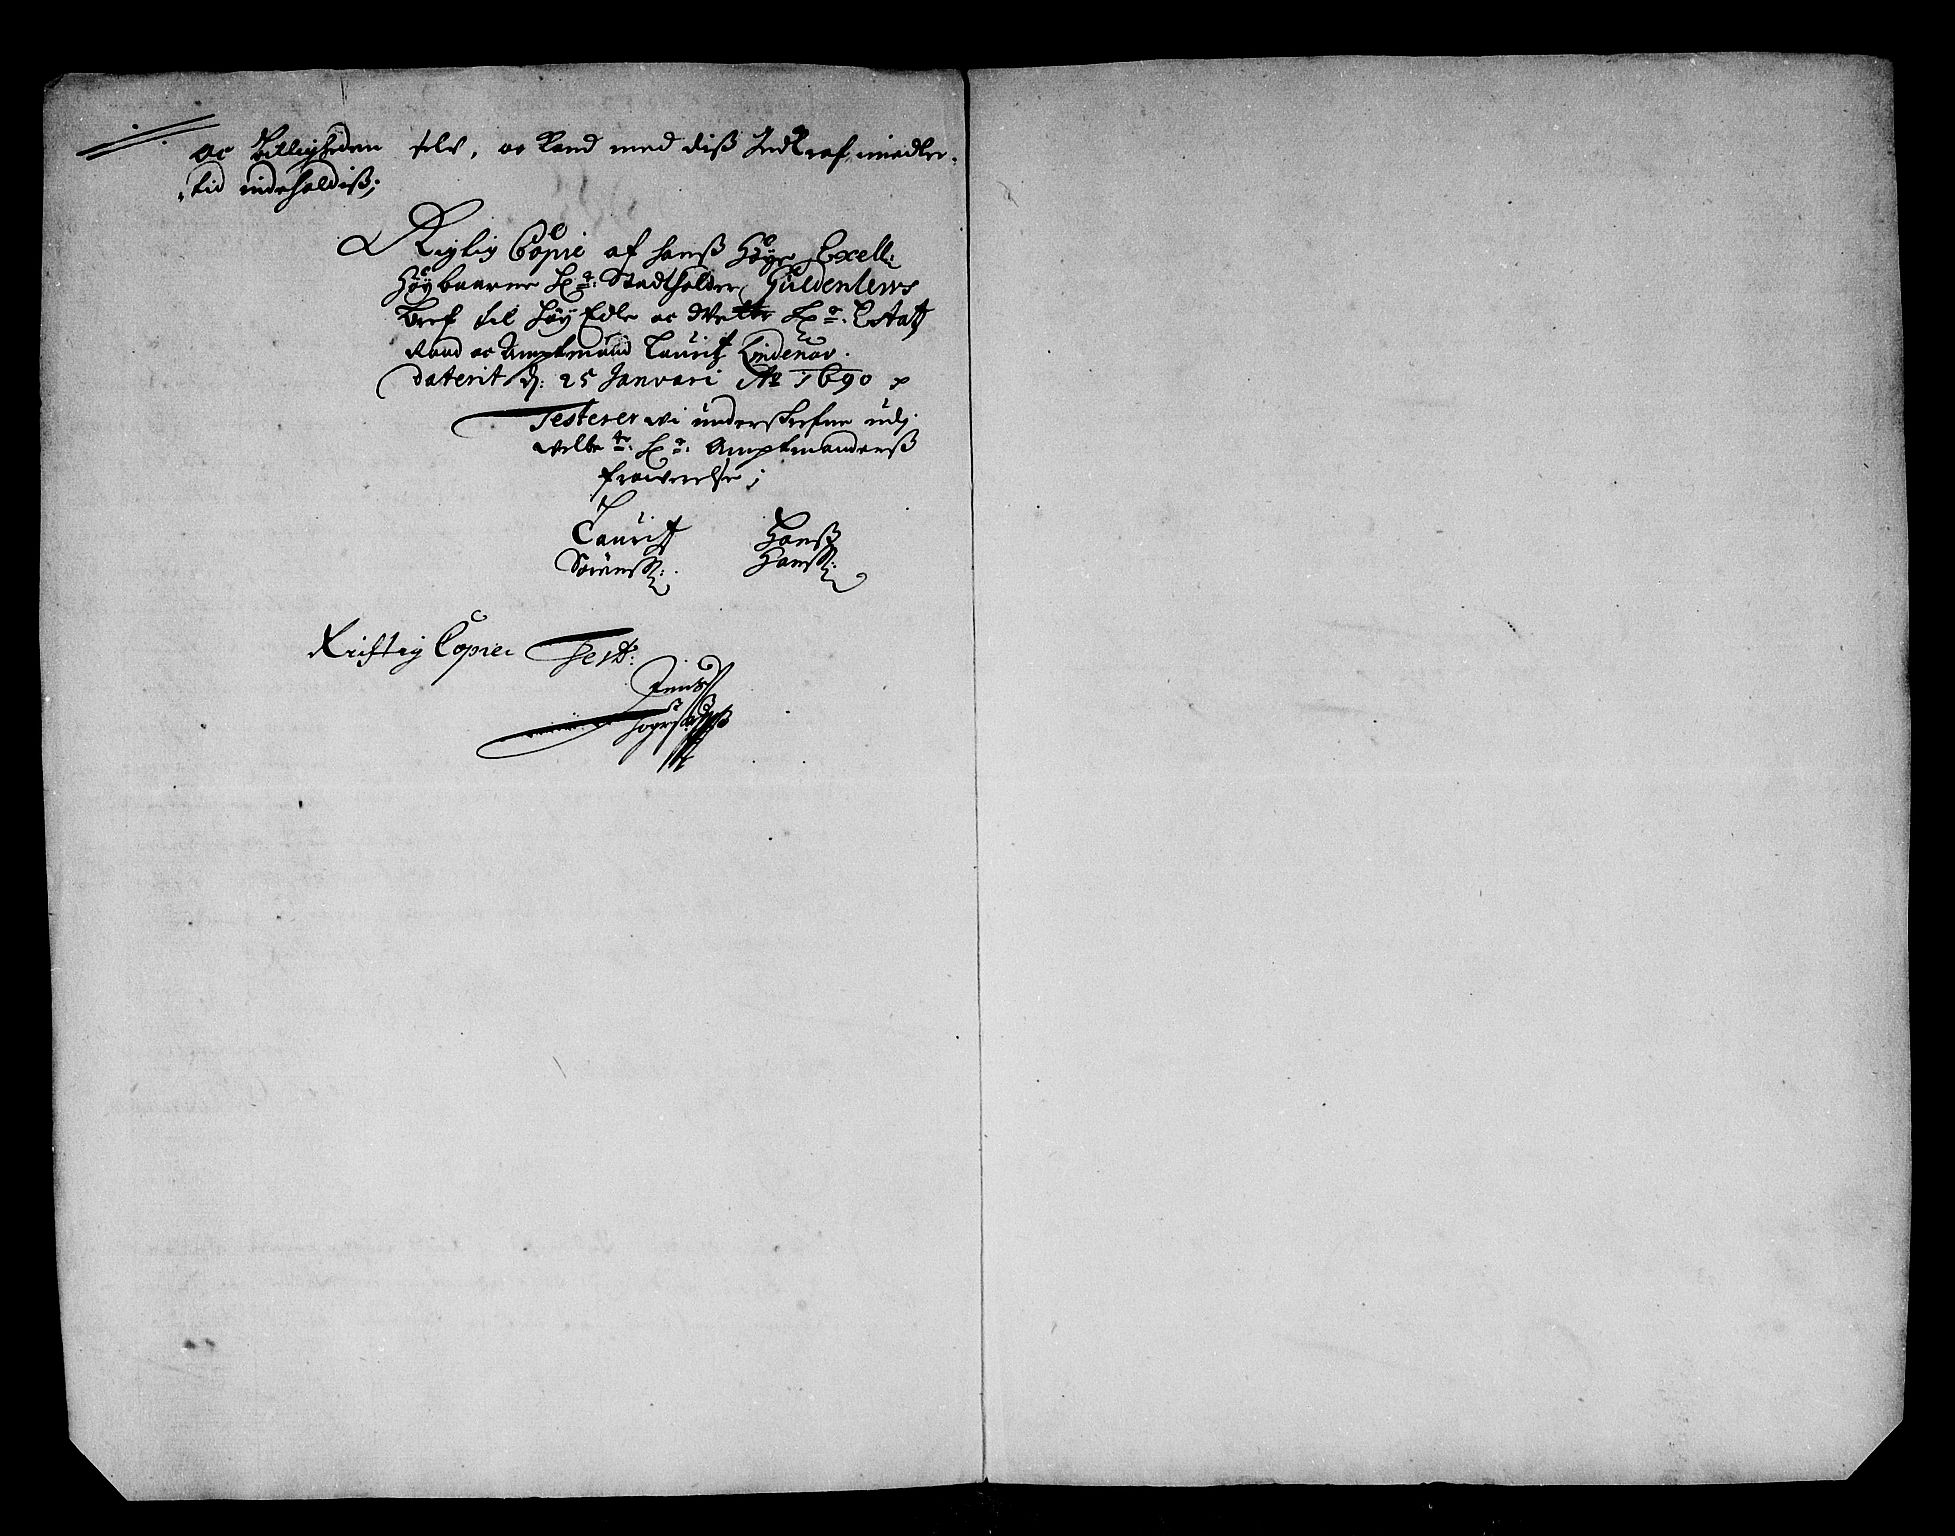 oc billigheden selv, oc kand med diß Indkraf imidler„
„tid indeholdiß;
Rigtig Copie af hanß Høye Excell:
Høybaarne Hr: Stadtholder Güldenlews
bref til Høy Edle oc Welb: Hr: Estatz
Raad oc Amptmand Lauritz Lindenov
daterit d: 25 Januari Ao 1690
Testerer wi underskrefne udj
welbte: Hr: Amptmandenß
frawerelse;
Lauritz Hanß
Sørenß: Hanß:
Richtig Copie Test:
Jenß